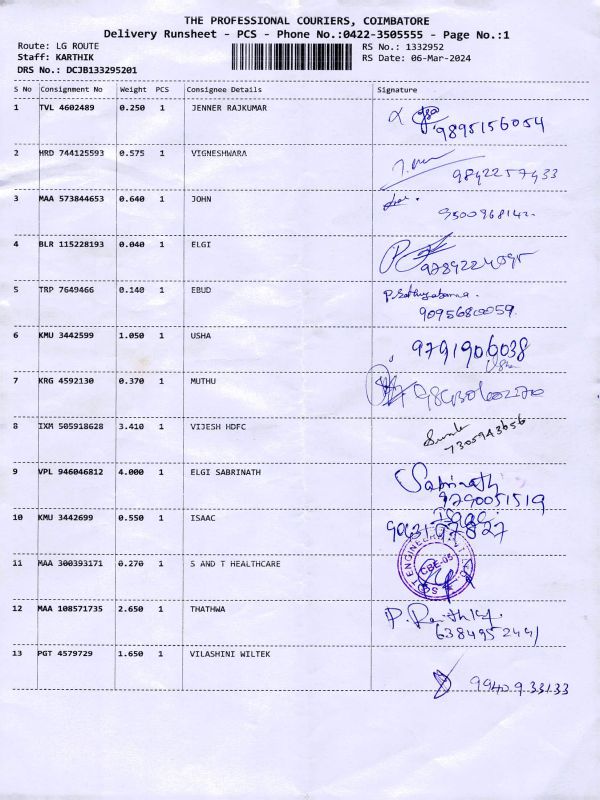 THE PROFESSIONAL COURIERS, COIMBATORE
Delivery Runsheet - PCS - Phone No.:0422-3505555 - Page No.:1
Route: LG ROUTE RS No.: 1332952
Staff: KARTHIK RS Date: 06-Mar-2024
DRS No.: DCJB133295201
S No Consignment No Weight PCS Consignee Details Signature
1 TVL 4602489 0.250 1 JENNER RAJKUMAR
9895156054
2 HRD 744125593 0.575 1 VIGNESHWARA
9842257433
3 MAA 573844653 0.640 1 JOHN
4 BLR 115228193 0.040 1 ELGI
5 TRP 7649466 0.140 1 EBUD
6 KMU 3442599 1.050 1 USHA
9791906038
Usha
7 KRG 4592130 0.370 1 MUTHU
8 IXM 505918628 3.410 1 VIJESH HDFC
7305943656
9 VPL 946046812 4.000 1 ELGI SABRINATH
Sabrinath
9790051519
10 KMU 3442699 0.550 1 ISAAC
Isaac
11 MAA 300393171 0.270 1 S AND T HEALTHCARE
CBE-05
12 MAA 108571735 2.650 1 THATHWA
6384952441
13 PGT 4579729 1.650 1 VILASHINI WILTEK
9940933133